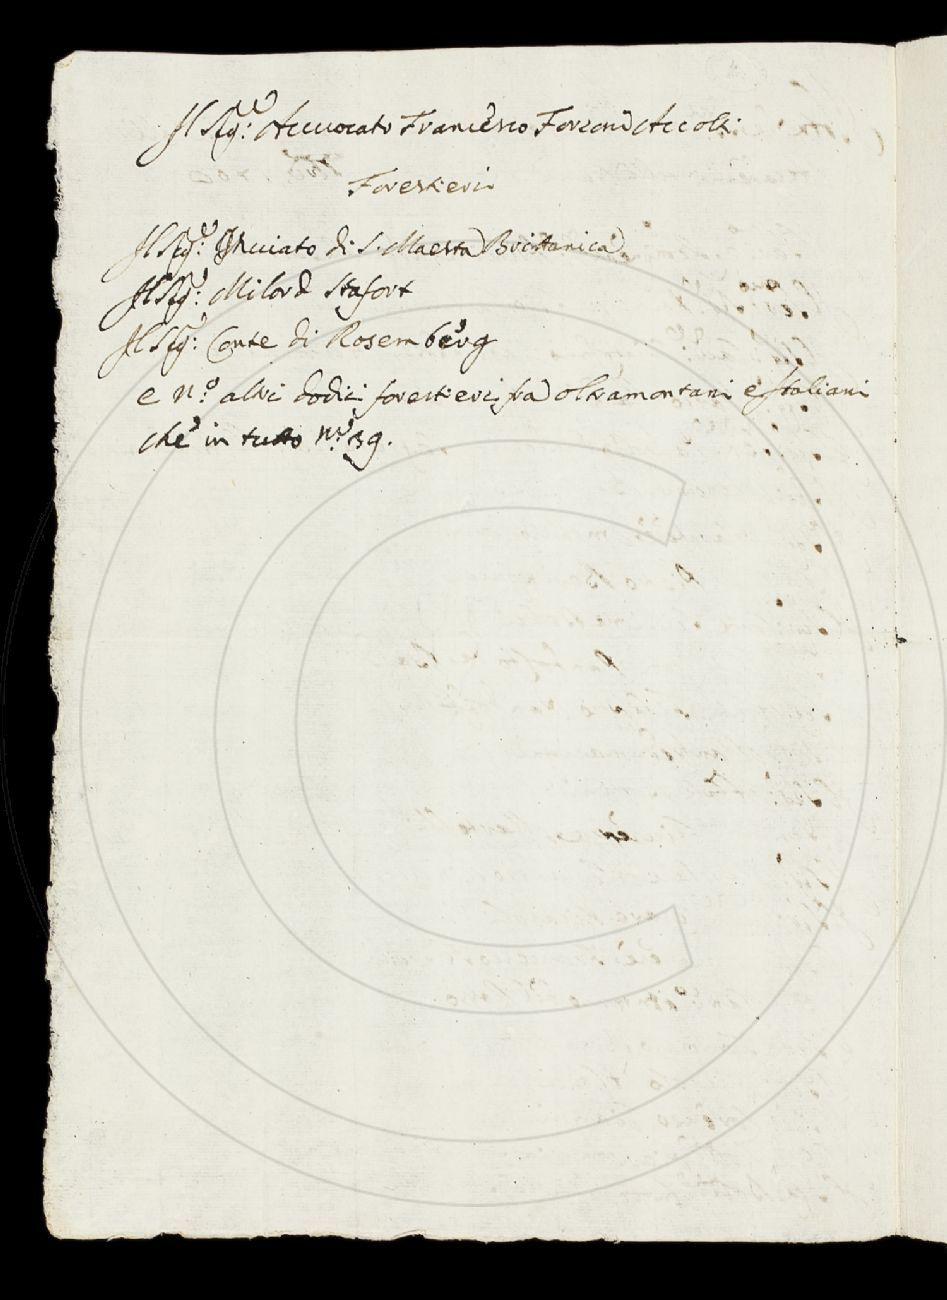 Il Sig:re Avvocato Francesco Forzoni Accolti
Forestieri
Il Sig:re Inviato di S. Maestà Brittanica
Il Sig:re Milord Stafort
Il Sig:re Conte di Rosemberg
e n.o altri dodici forestieri fra oltramontani e Italiani
che in tutto n.o 39.